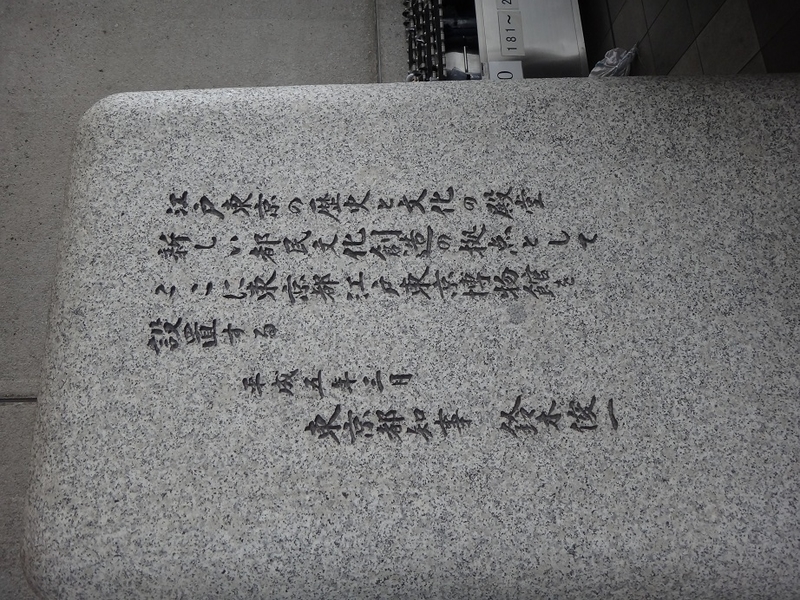 江戸東京の歴史と文化の殿堂
新しい都民文化創造の拠点として
ここに東京都江戸東京博物館を
設置する
平成五年三月
東京都知事 鈴木俊一
181~